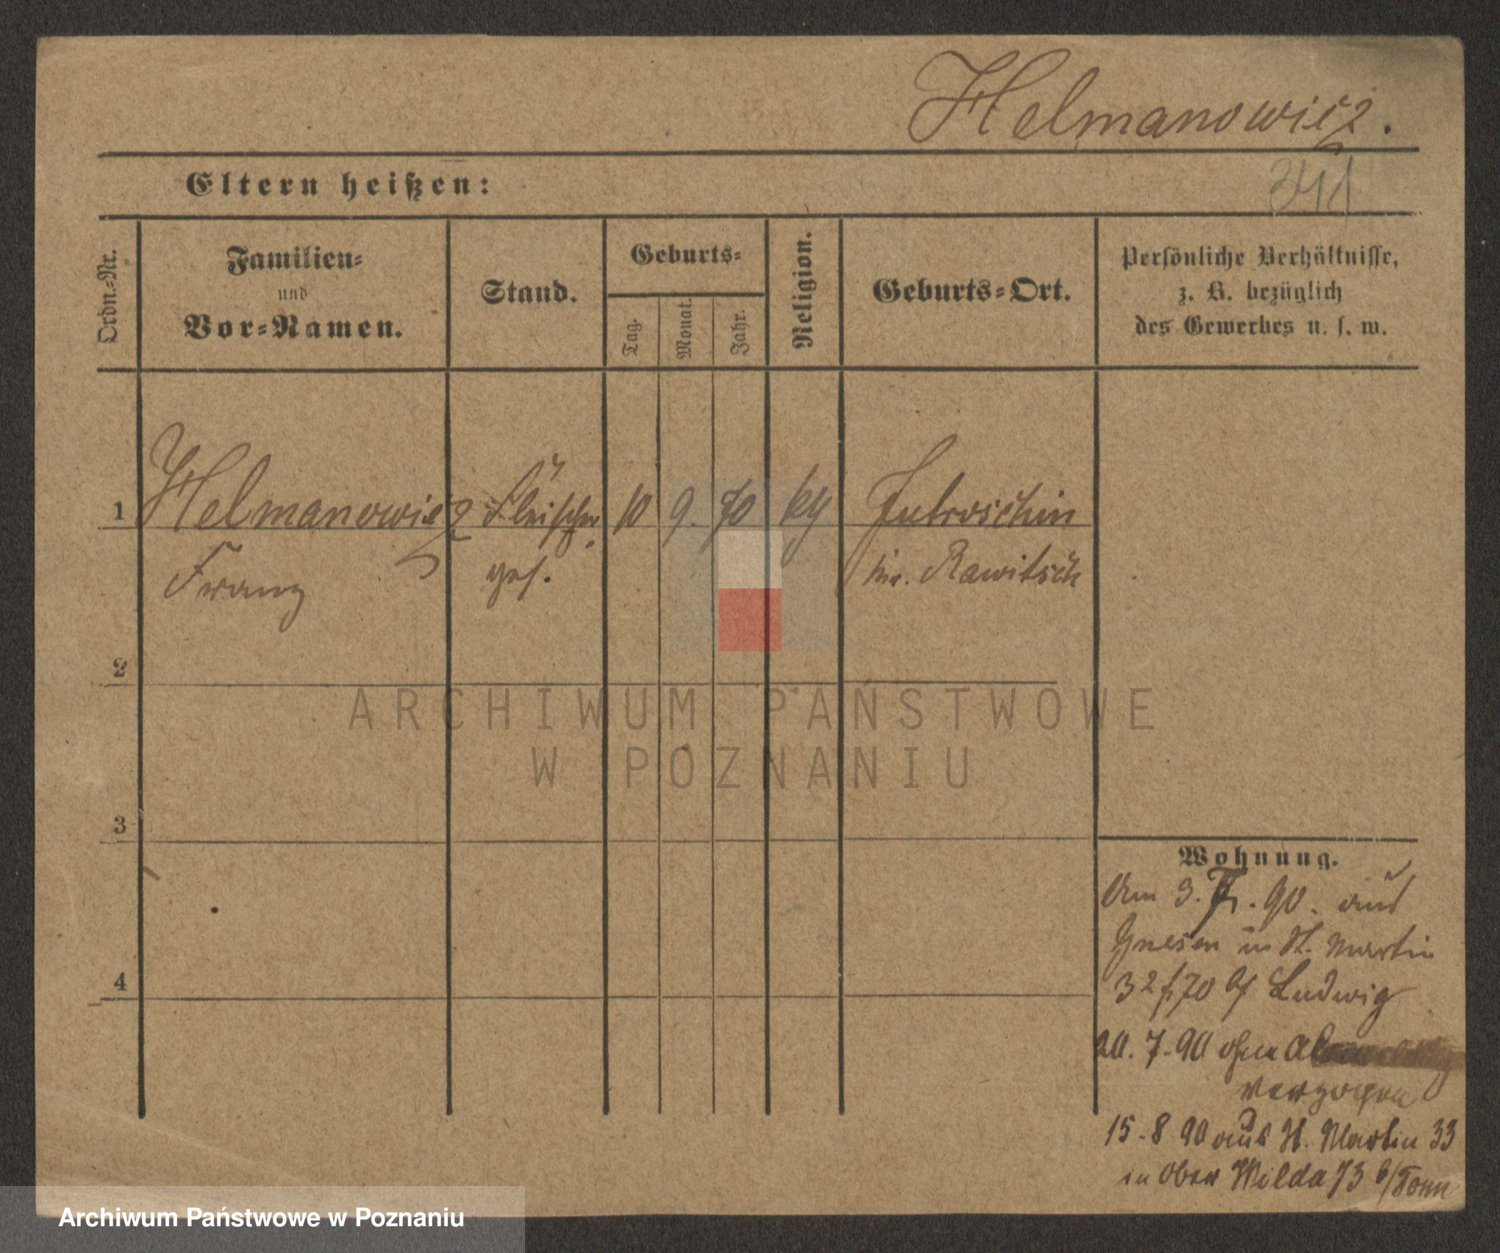 Helmanowicz.
341
Eltern heißen:
Ordn.-Nr.
Familien-
und
Vor-Namen.
Stand.
Geburts-
Tag.
Monat.
Jahr.
Religion.
Geburts-Ort.
Persönliche Verhältnisse,
z. B. bezüglich
des Gewerbes u. s. w.
1 Helmanowicz Fleischer 10 9. 70 Jutroschin
Franz ges. Rawitsch
2
3
4
ARCHIWUM PAŃSTWOWE
W POZNANIU
Wohnung.
Am 3. 90. aus
Gnesen in St. Martin
32 Ludwig
20. 7. 90 ohne
verzogen
15. 8 90 aus St. Martin 33
in Ober Wilda 73 b/
Archiwum Państwowe w Poznaniu